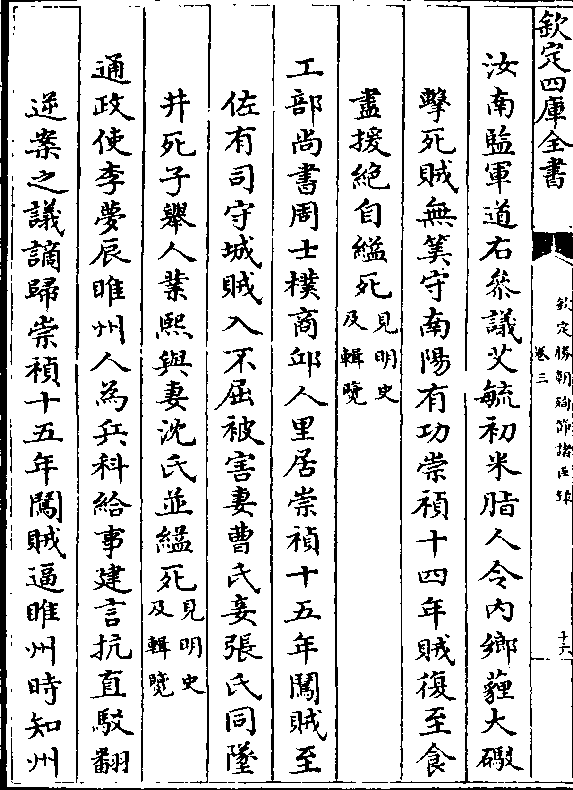 欽定四庫全書
欽定勝朝殉節諸臣錄
卷三
十六
汝南監軍道右叅議艾毓初米脂人令内鄉薶大礮
擊死賊無筭守南陽有功崇禎十四年賊復至食
盡援絶自縊死見明史
及輯覽
工部尚書周士樸商邱人里居崇禎十五年闖賊至
佐有司守城賊入不屈被害妻曹氏妾張氏同墜
井死子舉人業熙與妻沈氏並縊死見明史
及輯覽
通政使李夢辰睢州人為兵科給事建言抗直駁翻
逆案之議謫歸崇禎十五年闖賊逼睢州時知州